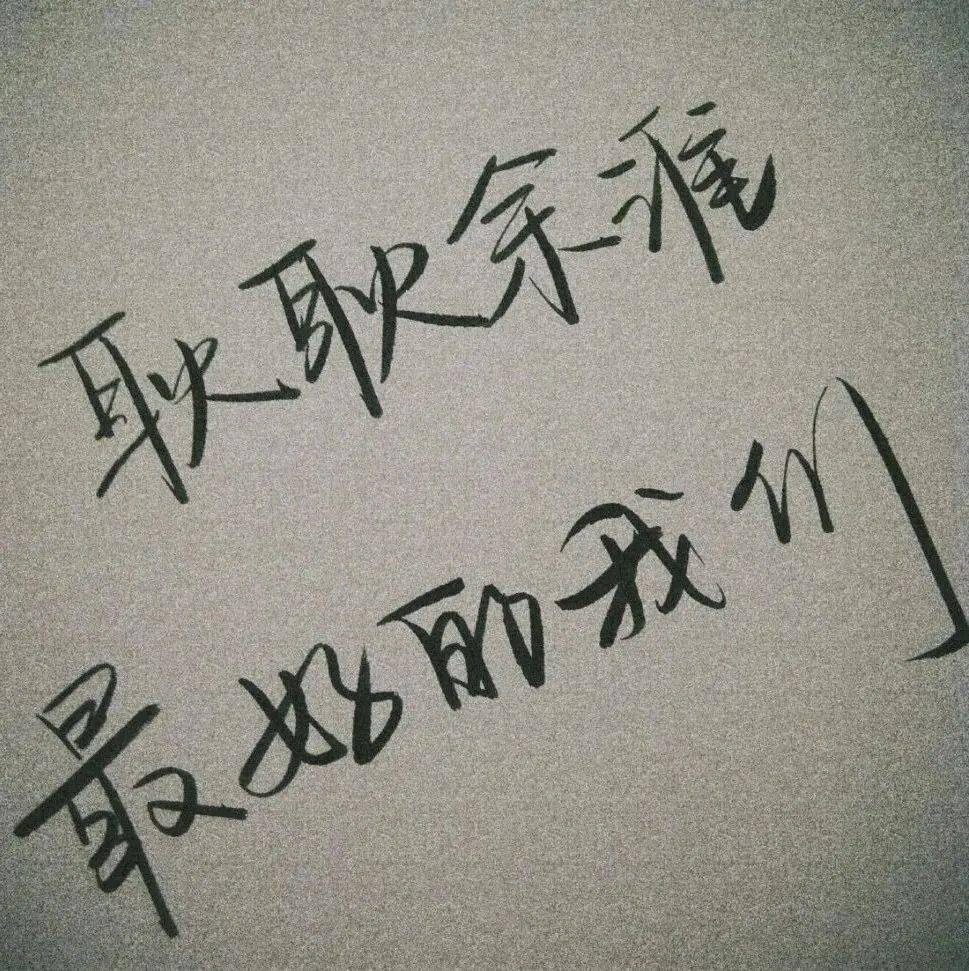 耿耿余淮
最好的我们